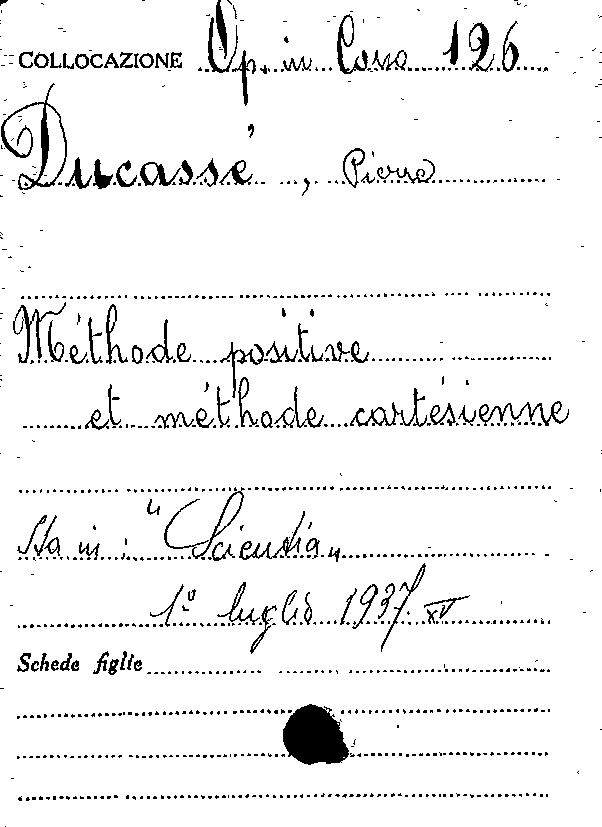 COLLOCAZIONE Op. in Corso 126
Ducassé, Pierre
Méthode positive
et méthode cartésienne
Sta in: "Scientia"
1º luglio 1937. XV
Schede figlie